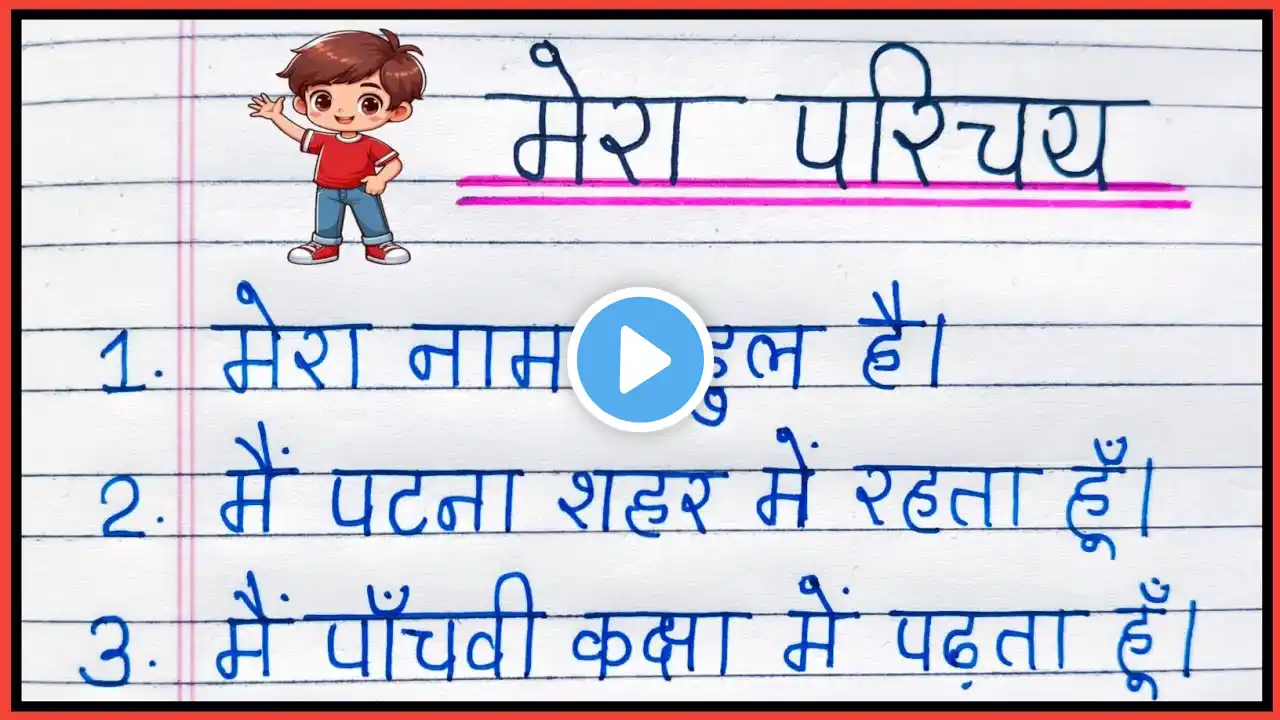 मेरा परिचय
1. मेरा नाम है।
2. मैं पटना शहर में रहता हूँ।
3. मैं पाँचवी कक्षा में पढ़ता हूँ।